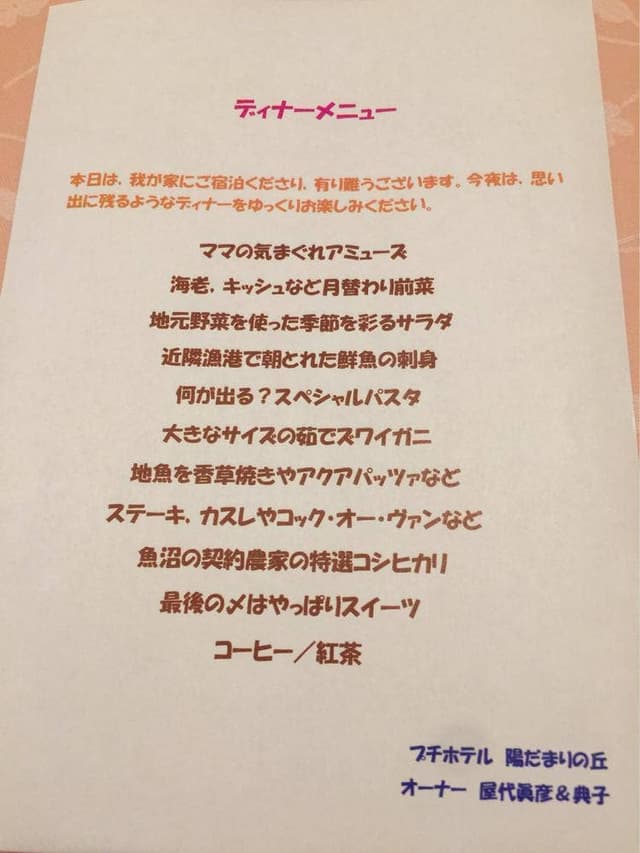 ディナーメニュー
本日は、我が家にご宿泊くださり、有り難うございます。今夜は、思い
出に残るようなディナーをゆっくりお楽しみください。
ママの気まぐれアミューズ
海老、キッシュなど月替わり前菜
地元野菜を使った季節を彩るサラダ
近隣漁港で朝とれた鮮魚の刺身
何が出る？スペシャルパスタ
大きなサイズの茹でズワイガニ
地魚を香草焼きやアクアパッツァなど
ステーキ、カスレやコック・オー・ヴァンなど
魚沼の契約農家の特選コシヒカリ
最後の〆はやっぱりスイーツ
コーヒー／紅茶
プチホテル 陽だまりの丘
オーナー 屋代眞彦＆典子